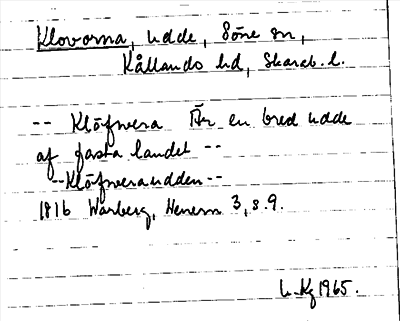 Klovorna, udde, Söne sn,
Kållands hd, Skarab. l.
-- Klöfwera Är en bred udde
af fasta landet --
--Klöfweraudden--
1816 Warberg, Wenern 3, s. 9.
1965.